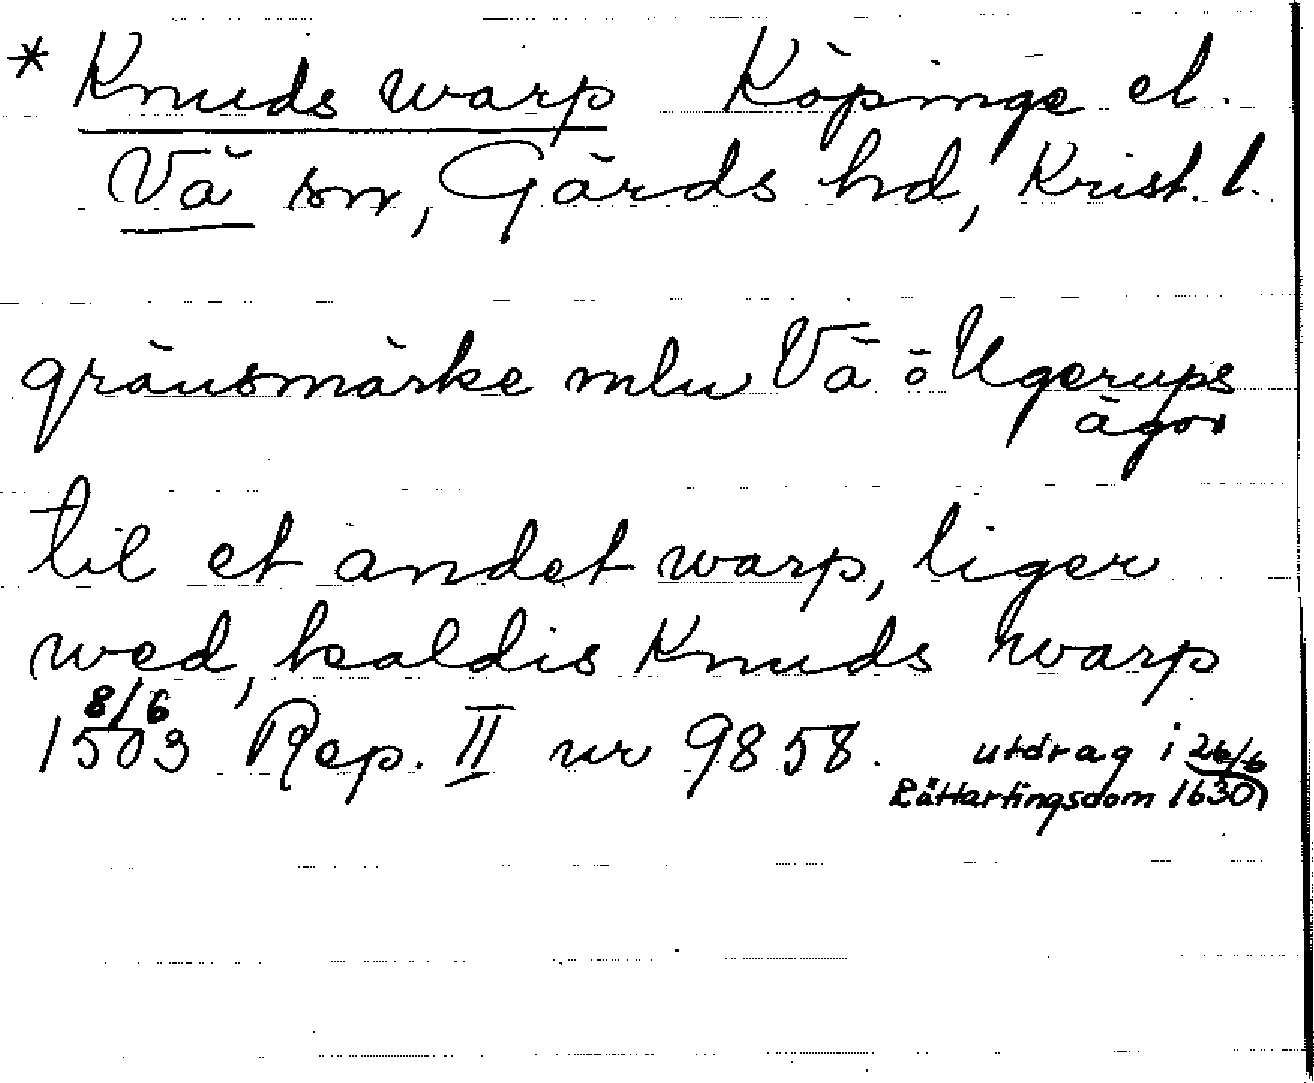 * Knuds warp Köpinge el.
Vä sn, Gärds hd, Krist. l.
gränsmärke mln Vä o Ugerups
ägor
til et andet warp, liger
wed, kaldis Knuds warp
8/6
1503 Rep. II nr 9858. utdrag i 26/6
Rättartingsdom 1630)